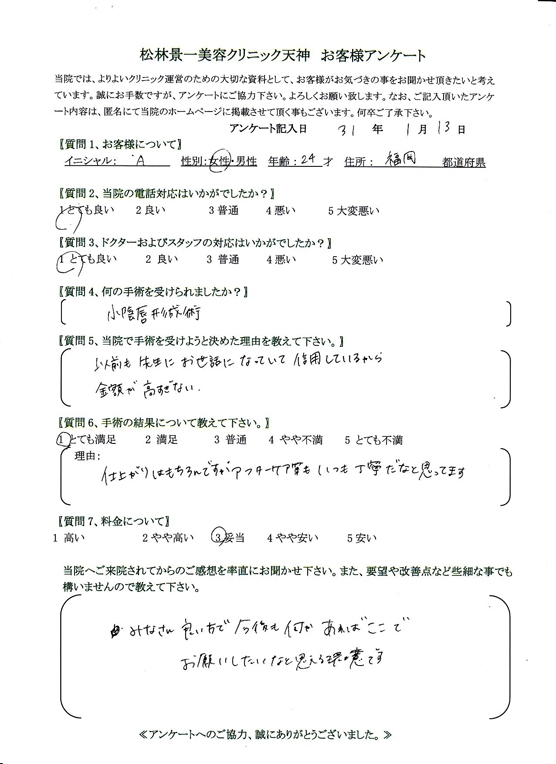 松林景一美容クリニック天神 お客様アンケート
当院では、よりよいクリニック運営のための大切な資料として、お客様がお気づきの事をお聞かせ頂きたいと考え
ています。誠にお手数ですが、アンケートにご協力下さい。よろしくお願い致します。なお、ご記入頂いたアンケ
ート内容は、匿名にて当院のホームページに掲載させて頂く事もございます。何卒ご了承下さい。
アンケート記入日 31 年 1月 13日
【質問1、お客様について】
イニシャル: A 性別:女性・男性 年齢:24才 住所: 福岡 都道府県
【質問2、当院の電話対応はいかがでしたか?】
1とても良い 2良い 3普通 4悪い 5大変悪い
【質問3、ドクターおよびスタッフの対応はいかがでしたか?】
1とても良い 2 良い 3 普通 4悪い 5大変悪い
【質問4、何の手術を受けられましたか?】
小陰唇形成術
【質問5、当院で手術を受けようと決めた理由を教えて下さい。】
以前も先生にお世話になっていて信用しているから
金額が高すぎない.
【質問6、手術の結果について教えて下さい。】
1とても満足 2 満足 3 普通 4 やや不満 5 とても不満
理由:
仕上がりはもちろんですがアフターケア等もいつも丁寧だなと思ってます
【質問7、料金について】
1 高い 2やや高い 3妥当 4やや安い 5安い
当院へご来院されてからのご感想を率直にお聞かせ下さい。また、要望や改善点など些細な事でも
構いませんので教えて下さい。
みなさん良い方で今後も何かあればここで
お願いしたいなと思える です
≪アンケートへのご協力、誠にありがとうございました。≫